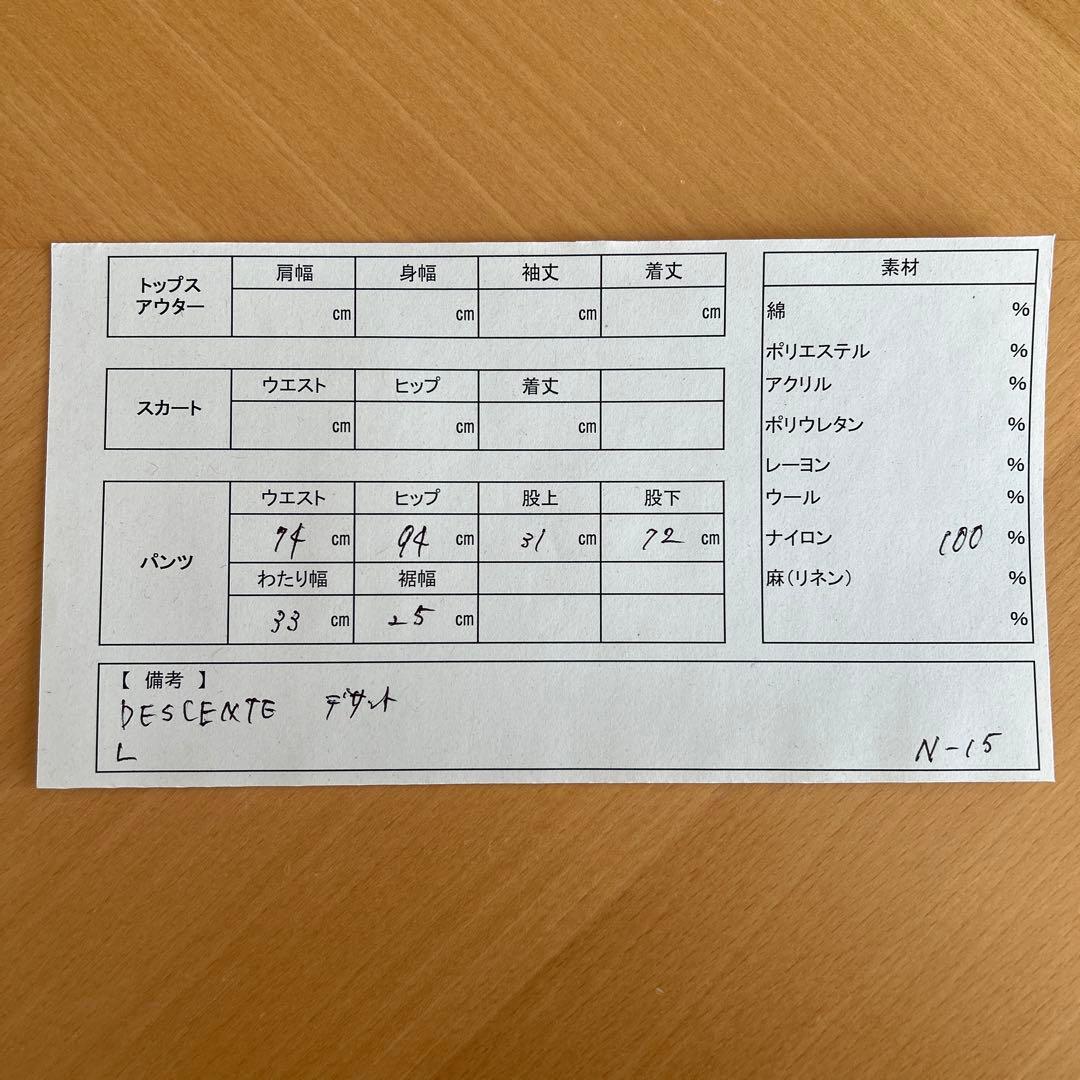 トップス アウター 肩幅 身幅 袖丈 着丈
cm cm cm cm
スカート ウエスト ヒップ 着丈
cm cm cm
パンツ ウエスト ヒップ 股上 股下
74 cm 94 cm 31 cm 72 cm
わたり幅 裾幅
33 cm 25 cm
素材
綿 %
ポリエステル %
アクリル %
ポリウレタン %
レーヨン %
ウール %
ナイロン 100 %
麻(リネン) %
%
【 備考 】
DESCENTE デサント
L N-15